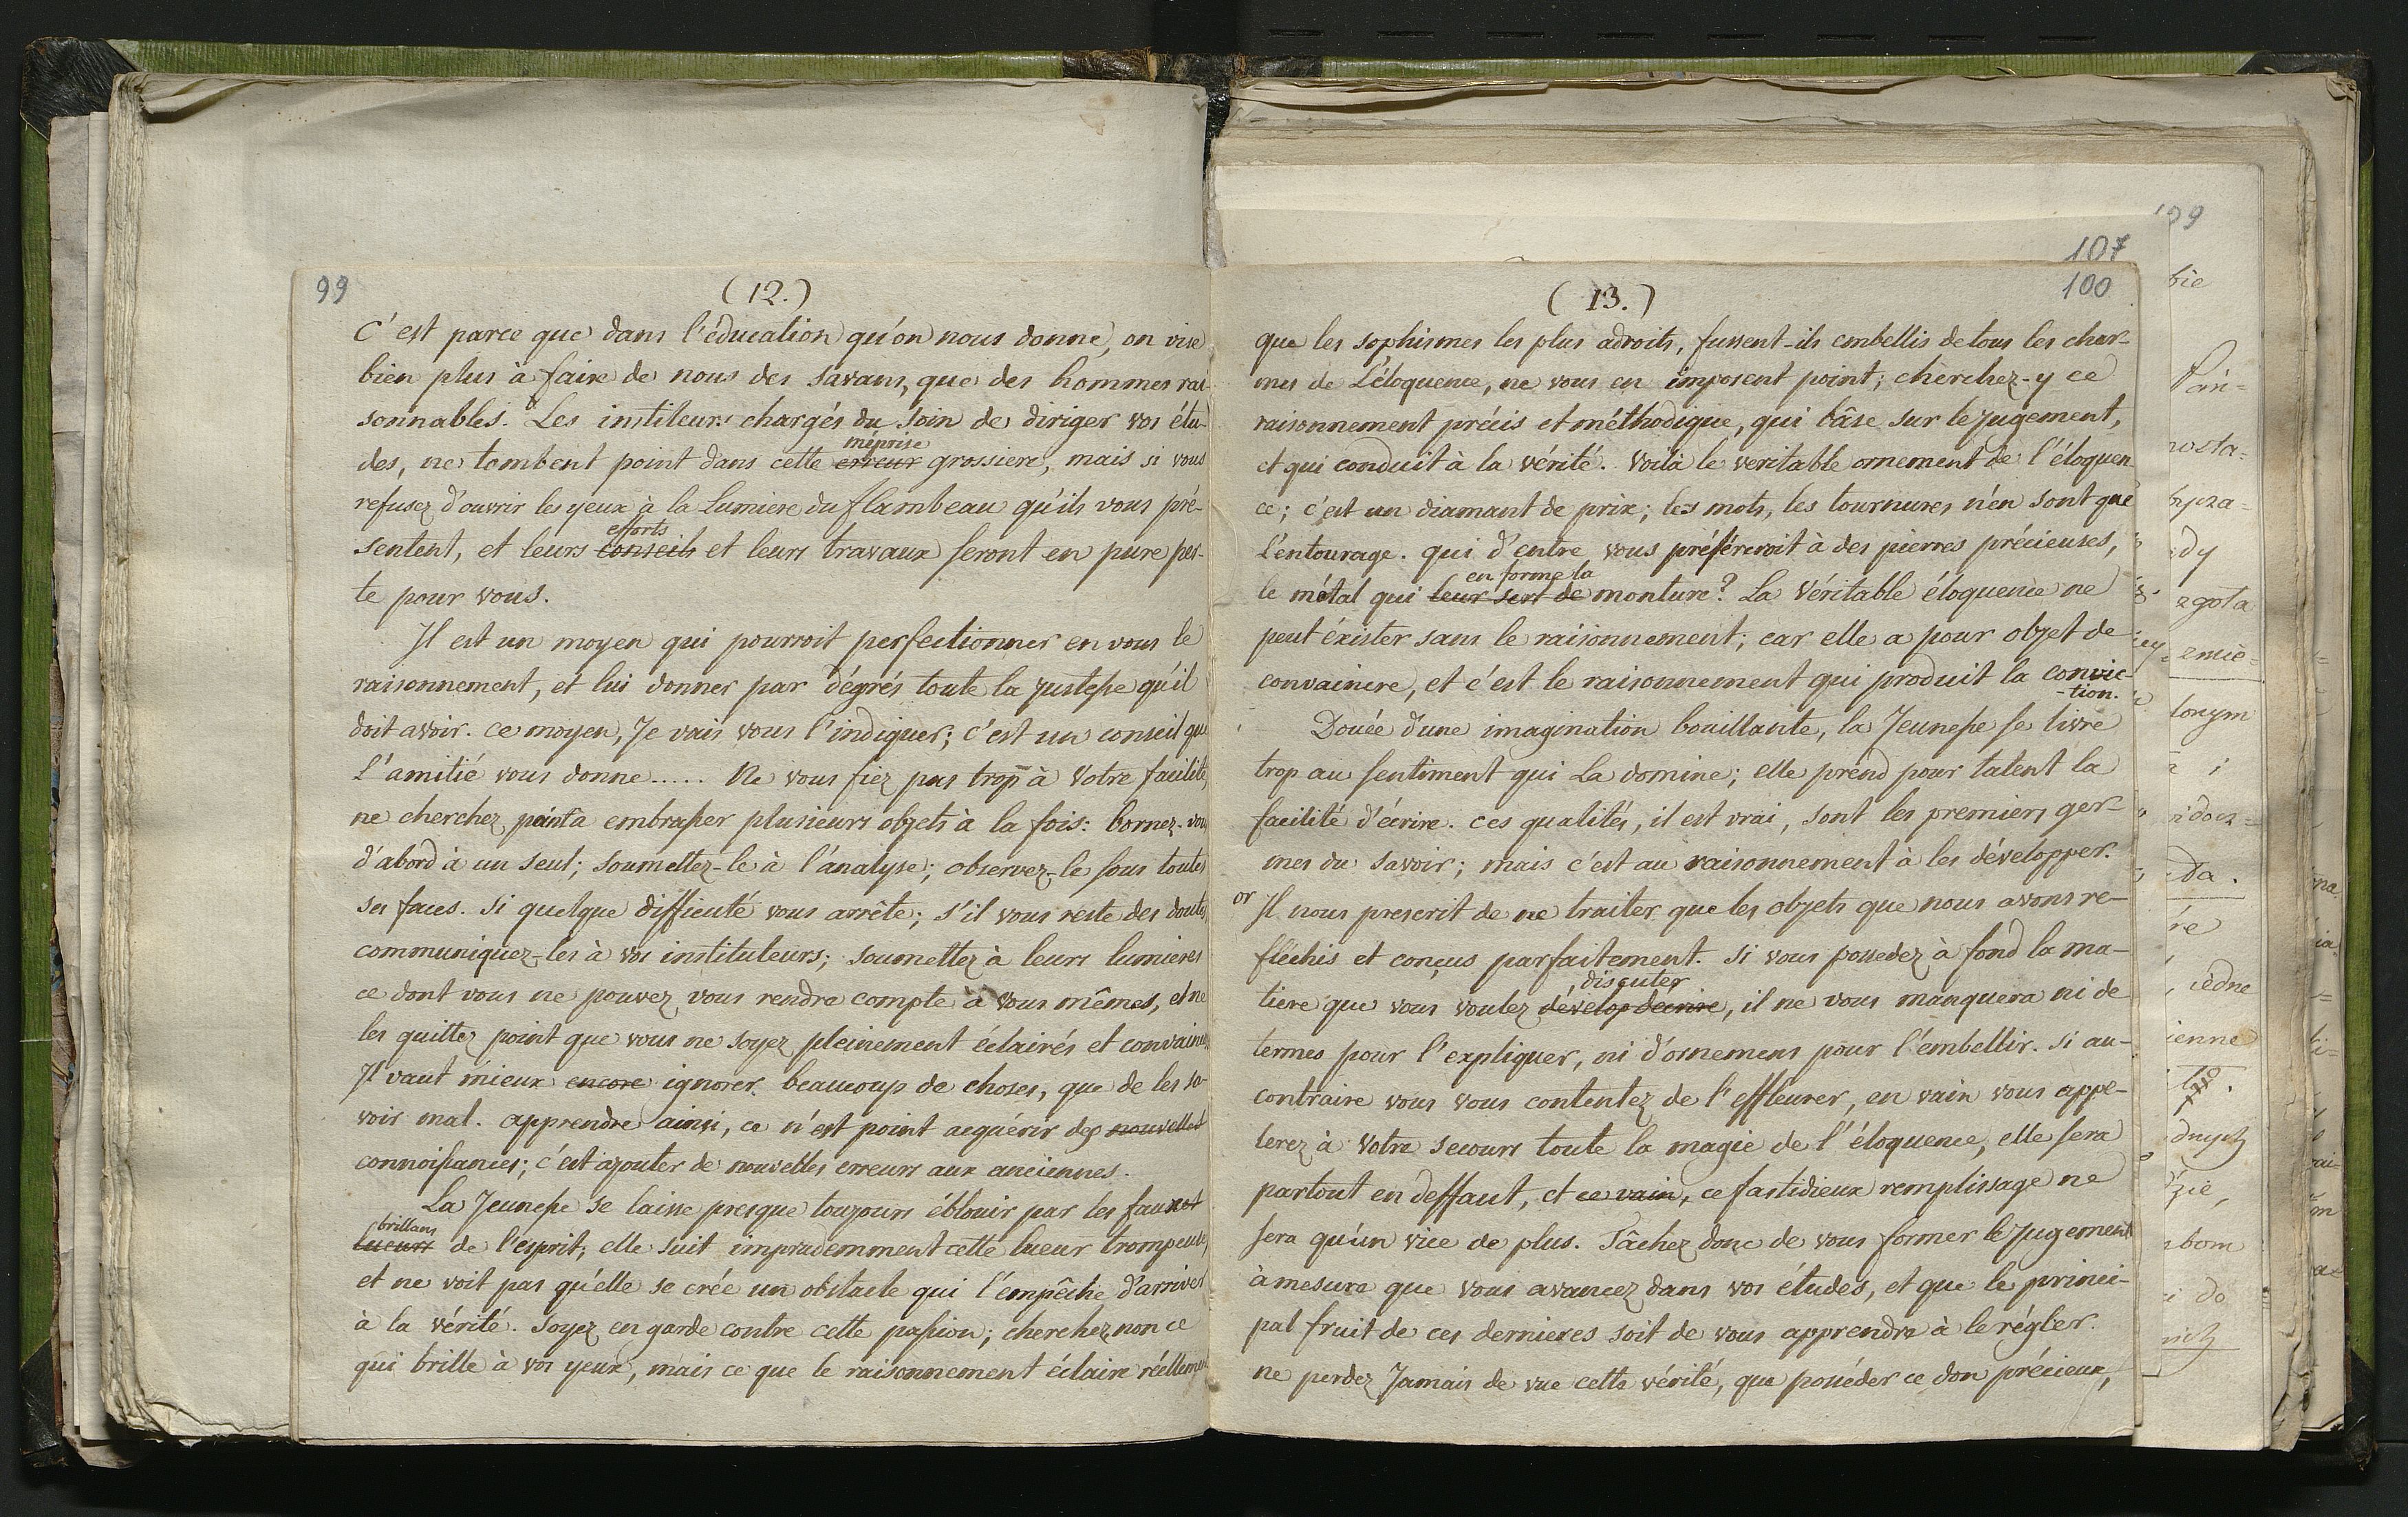 99
(12.)
C'est parce que dans l'éducation qu'on nous donne, on vise
bien plus à faire de nous des savans, que des hommes rai-
sonnables. Les instileurs chargés du soin de diriger vos étu-
méprise
des, ne tombent point dans cette erreur grossiere, mais si vous
refusez d'ouvrir les yeux à la Lumiere du flambeau qu'ils vous pré-
efforts
sentent, et leurs conseils et leurs travaux seront en pure per-
te pour vous.
Il est un moyen qui pourroit perfectionner en vous le
raisonnement, et lui donner par dégrés toute la justesse qu'il
doit avoir. ce moyen, Je vais vous l'indiquer; c'est un conseil que
L'amitié vous donne..... Ne vous fiez pas trop à Votre facilité,
ne cherchez point à embrasser plusieurs objets à la fois: bornez-vous
d'abord à un seul; soumettez-le à l'analyse; observez-le sous toutes
ses faces. si quelque difficulté vous arrête; s'il vous reste des doutes,
communiquez-les à vos instituteurs; soumettez à leurs lumieres
ce dont vous ne pouvez vous rendre compte à vous mêmes, et ne
les quittez point que vous ne soyez pleinement éclairés et convaincus.
Il vaut mieux encore ignorer beaucoup de choses, que de les sa-
voir mal. apprendre ainsi, ce n'est point acquérir des nouvelles
connoissances; c'est ajouter de nouvelles erreurs aux anciennes.
La Jeunesse se laisse presque toujours éblouir par les faux
brillans
lueurs de l'esprit; elle suit imprudemment cette lueur trompeuse,
et ne voit pas qu'elle se crée un obstacle qui l'empêche d'arriver
à la vérité. Soyez en garde contre cette passion; cherchez non ce
qui brille à vos yeux, mais ce que le raisonnement éclaire réellement
107
100
(13.)
que les sophismes les plus adroits, fussent-ils embellis de tous les char-
mes de L'éloquence, ne vous en imposent point; cherchez-y ce
raisonnement précis et méthodique, qui bâse sur le jugement,
et qui conduit à la vérité. Voilà le veritable ornement de l'éloquen-
ce; c'est un diamant de prix; les mots, les tournures n'en sont que
L'entourage. qui d'entre vous préféreroit à des pierres précieuses,
en forme la
le métal qui leur sert de monture? La Véritable éloquence ne
peut éxister sans le raisonnement; car elle a pour objet de
convaincre, et c'est le raisonnement qui produit la convic-
-tion.
Douée d'une imagination bouillante, la Jeunesse se livre
trop au sentiment qui La domine; elle prend pour talent la
facilité d'écrire. ces qualités, il est vrai, sont les premiers ger-
mes du savoir; mais c'est au raisonnement à les développer.
or Il nous prescrit de ne traiter que les objets que nous avons re-
fléchis et conçus parfaitement. Si vous possedez à fond la ma-
discuter
tiere que vous voulez develop decrire, il ne vous manquera ni de
termes pour l'expliquer, ni d'ornemens pour l'embellir. Si au-
contraire vous vous contentez de l'effleurer, en vain vous appe-
lerez à Votre secours toute la magie de l'éloquence, elle sera
partout en deffaut, et ce vain, ce fastidieux remplissage ne
sera qu'un vice de plus. Tâchez donc de vous former le Jugement
à mesure que vous avancez dans vos études, et que le princi-
pal fruit de ces dernieres soit de vous apprendre à le régler.
ne perdez Jamais de vue cette vérité, que posséder ce don précieux,
bie
dy
da.
re